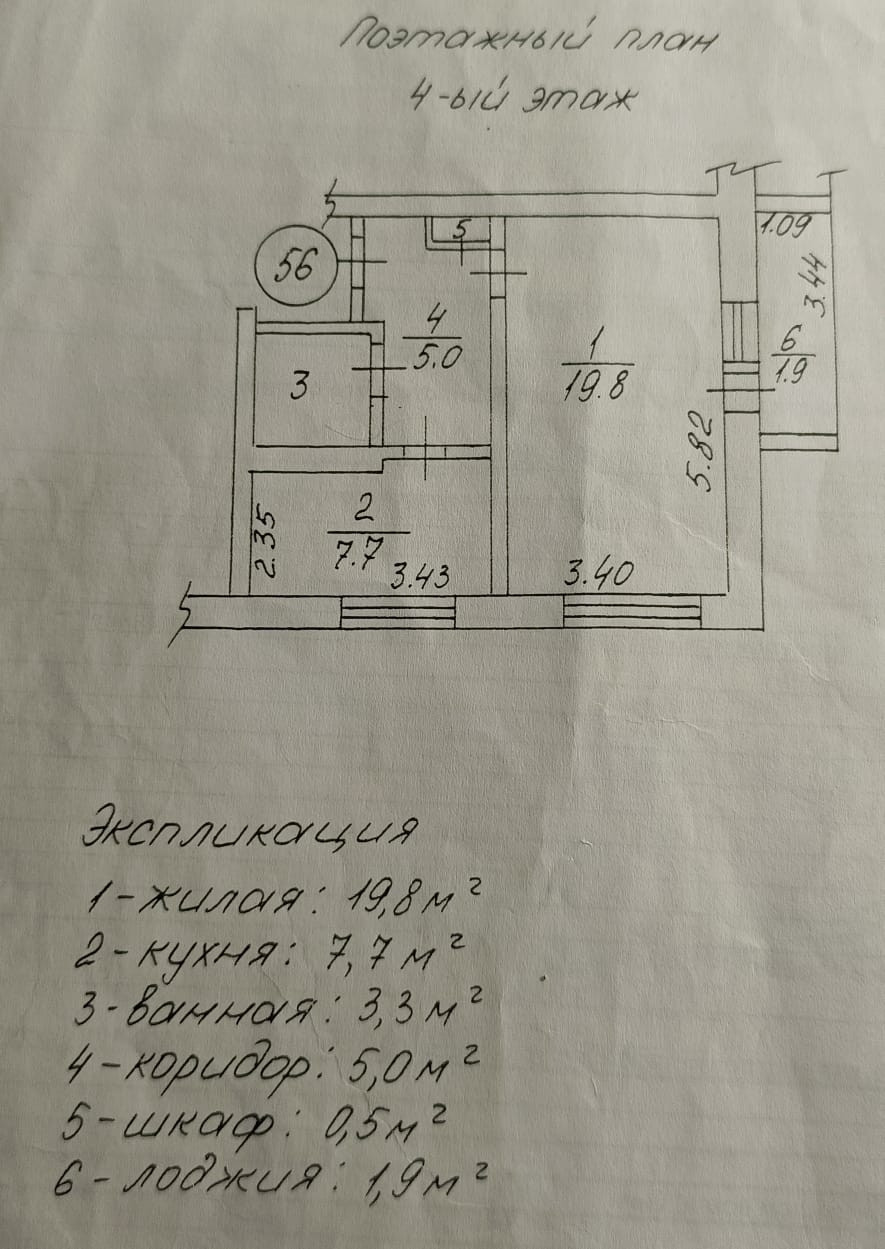 Поэтажный план
4-ый этаж
1.09
5
56
3.44
4
5.0
1
19.8
6
1.9
3
5.82
2
7.7
2.35
3.43
3.40
Экспликация
1-жилая: 19,8 м²
2-кухня: 7,7 м²
3-ванная: 3,3 м²
4-коридор: 5,0 м²
5-шкаф: 0,5 м²
6-лоджия: 1,9 м²